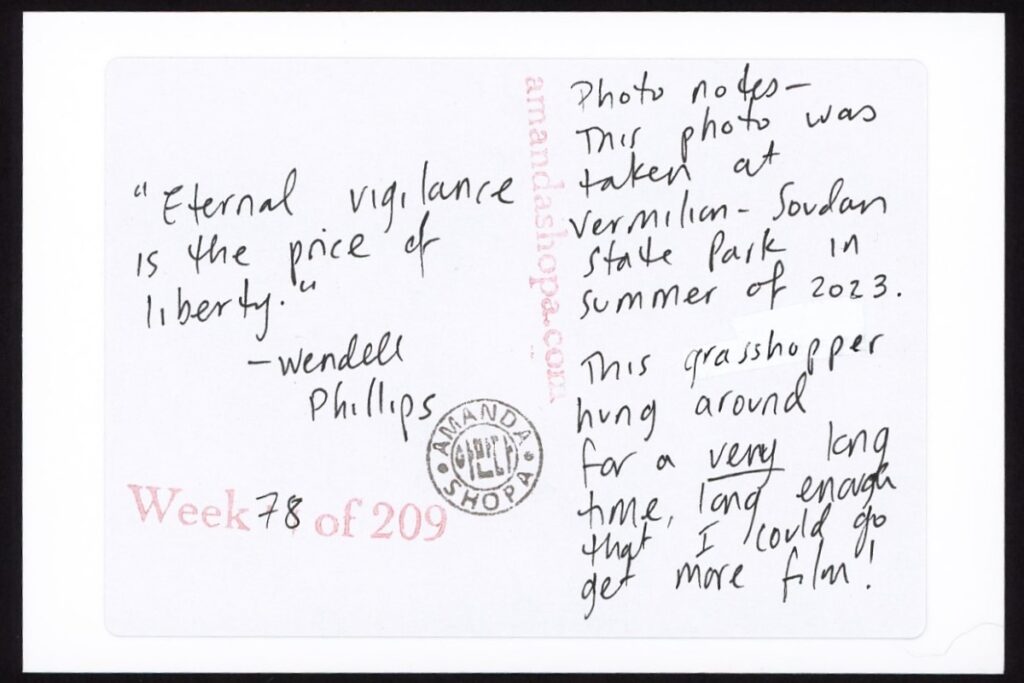 "Eternal vigilance
is the price of
liberty."
-Wendell
Phillips
Week 78 of 209
AMANDA
SHOPA
amandashopa.com
Photo notes-
This photo was
taken at
Vermilion-Soudan
State Park in
summer of 2023.
This grasshopper
hung around
for a very long
time, long enough
that I could go
get more film!